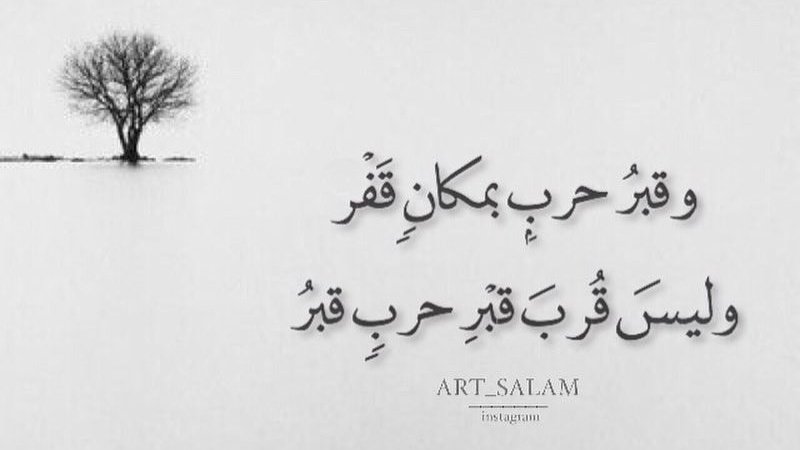 و قبرُ حربٍ بمكانٍ قَفْر
وليسَ قُربَ قبْرِ حربٍ قبرُ
ART_SALAM
instagram